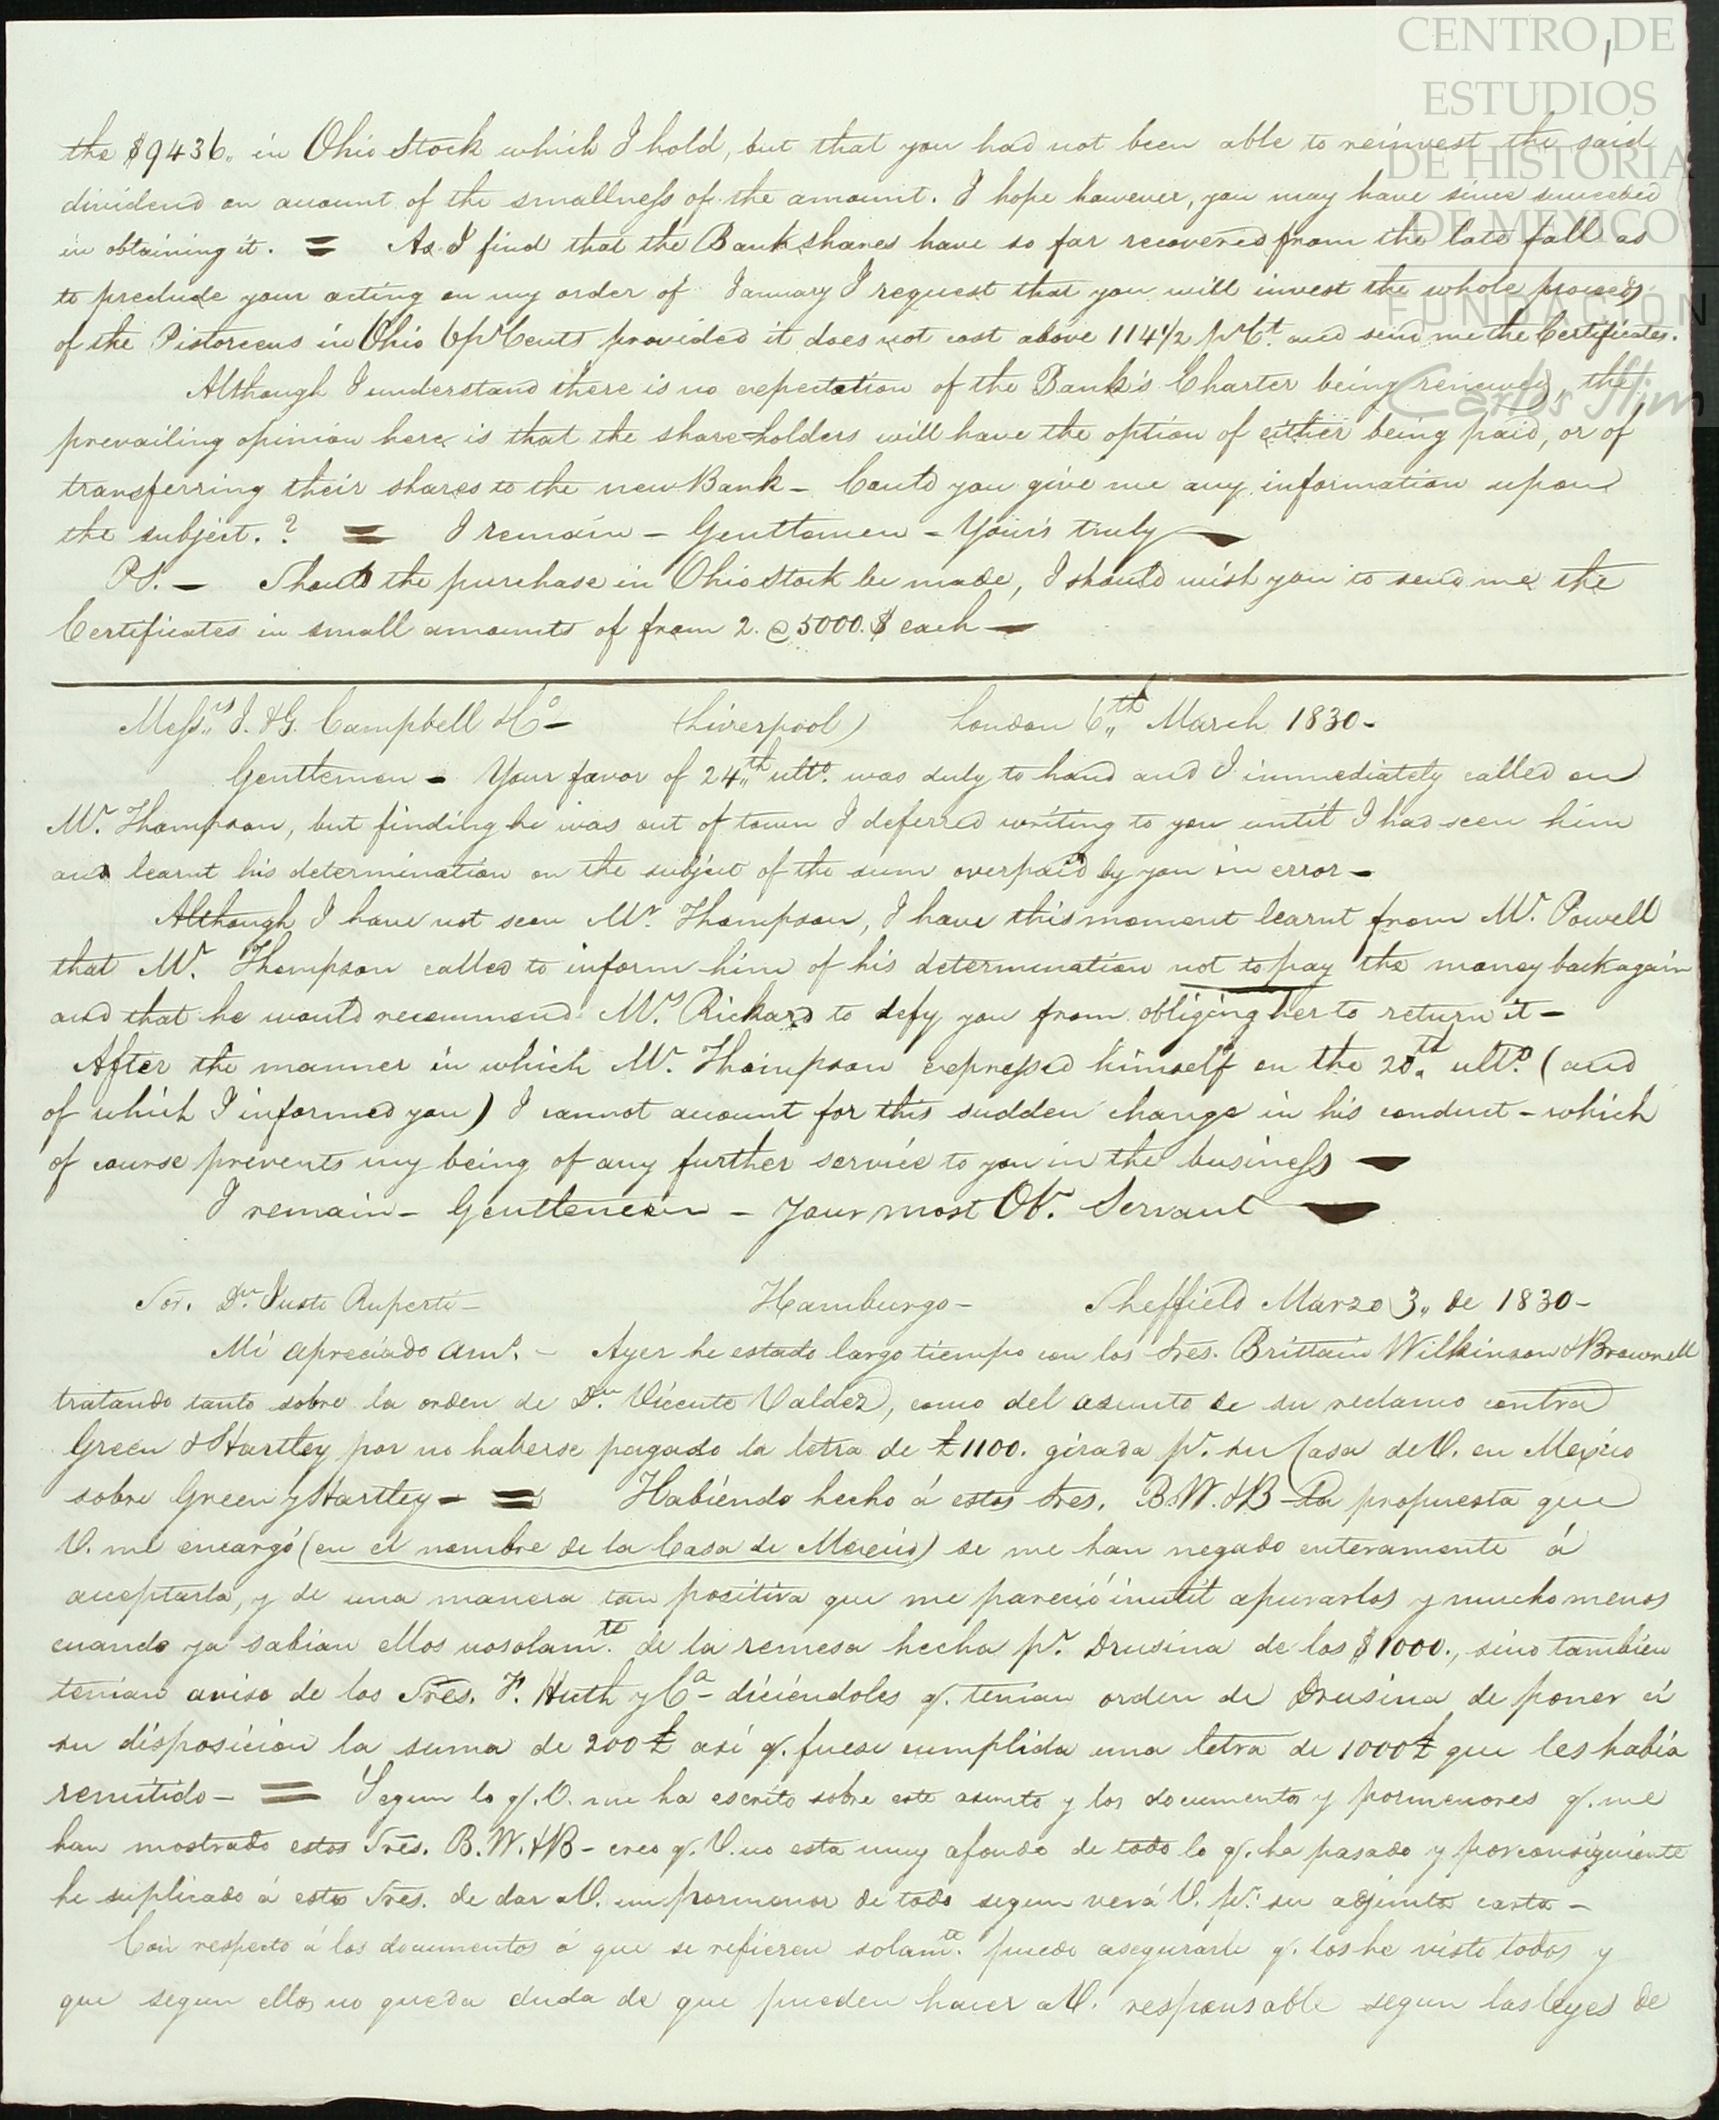 CENTRO DE
ESTUDIOS
DE HISTORIA
DE MEXICO
FUNDACIÓN
Carlos Slim
the $9436„ in Ohio Stock which I hold, but that you had not been able to reinvest the said
dividend on account of the smallness of the amount. I hope however, you may have since succeeded
in obtaining it. = As I find that the Bank shares have so far recovered from the late fall as
to preclude your acting on my order of January I request that you will invest the whole proceeds
of the Pistareens in Ohio 6 pr Cents provided it does not cost above 114 1/2 pr Ct. and send me the Certificates.
Although I understand there is no expectation of the Bank's Charter being renewed, the
prevailing opinion here is that the share-holders will have the option of either being paid, or of
transferring their shares to the new Bank - Could you give me any information upon
the subject.? = I remain - Gentlemen - Your's truly -
PS. - Should the purchase in Ohio Stock be made, I should wish you to send me the
Certificates in small amounts of from 2. @ 5000.$ each -
Messrs„ J. & G. Campbell & Co - (Liverpool) London 6„th March 1830 -
Gentlemen - Your favor of 24„th ulto. was duly to hand and I immediately called on
Mr. Thompson, but finding he was out of town I deferred writing to you until I had seen him
and learnt his determination on the subject of the sum overpaid by you in error -
Although I have not seen Mr. Thompson, I have this moment learnt from Mr. Powell
that Mr. Thompson called to inform him of his determination not to pay the money back again
and that he would recommend Mrs Rickard to defy you from obliging her to return it -
After the manner in which Mr. Thompson expressed himself on the 20„th ulto. (and
of which I informed you) I cannot account for this sudden change in his conduct - which
of course prevents my being of any further service to you in the business -
I remain - Gentlemen - Your most Obt. Servant -
Sor. Dn. Justo Ruperti - Hamburgo - Sheffield Marzo 3„ de 1830 -
Mi apreciado amo. - Ayer he estado largo tiempo con los Sres. Brittain Wilkinson & Brownell
tratando tanto sobre la orden de Dn. Vicente Valdez, como del asunto de su reclamo contra
Green & Hartley por no haberse pagado la letra de £1100. girada pr. su Casa de V. en Mexico
sobre Green y Hartley - = Habiendo hecho á estos Sres. B.W. & B - la propuesta que
V. me encargó (en el nombre de la Casa de Mexico) se me han negado enteramente á
aceptarla, y de una manera tan positiva que me pareció inutil apurarlos y mucho menos
cuando ya sabian ellos no solamte. de la remesa hecha pr. Drusina de los $1000., sino tambien
tenian aviso de los Sres. F. Huth y Ca - diciéndoles q. tenian orden de Drusina de poner á
su disposicion la suma de 200£ asi q. fuese cumplida una letra de 1000£ que les habia
remitido - = Segun lo q. V. me ha escrito sobre este asunto y los documentos y pormenores q. me
han mostrado estos Sres. B.W. & B - creo q. V. no esta muy afondo de todo lo q. ha pasado y por consiguiente
he suplicado á estos Sres. de dar a V. un pormenor de todo segun verá V. pr. su adjunta carta -
Con respecto á los documentos á que se refieren solamte. puedo asegurarle q. los he visto todos y
que segun ellos no queda duda de que pueden hacer a V. responsable segun las leyes de